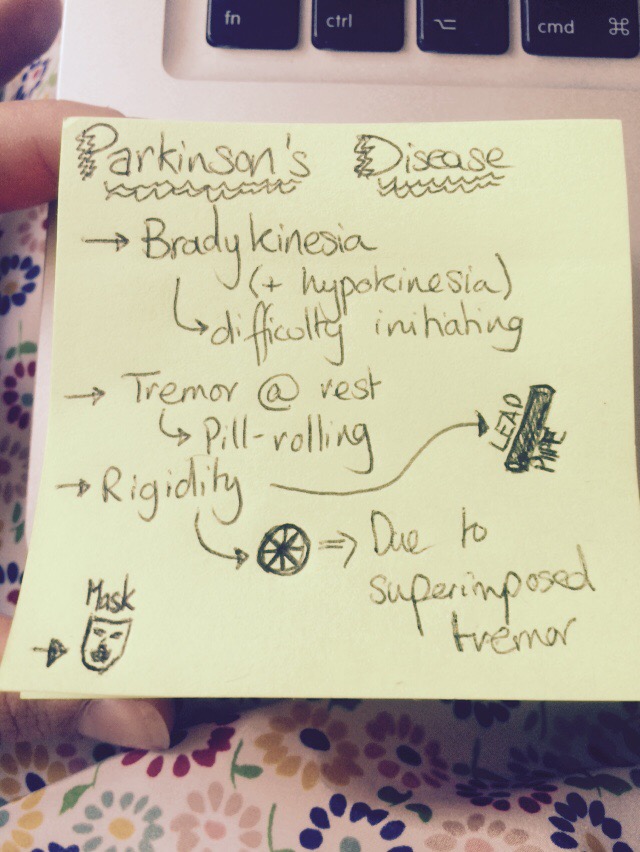 fn ctrl ⌥ cmd ⌘
Parkinson's Disease
→ Bradykinesia
(+ hypokinesia)
↳ difficulty initiating
→ Tremor @ rest
↳ Pill-rolling
LEAD
PIPE
→ Rigidity
⇒ Due to
superimposed
tremor
Mask